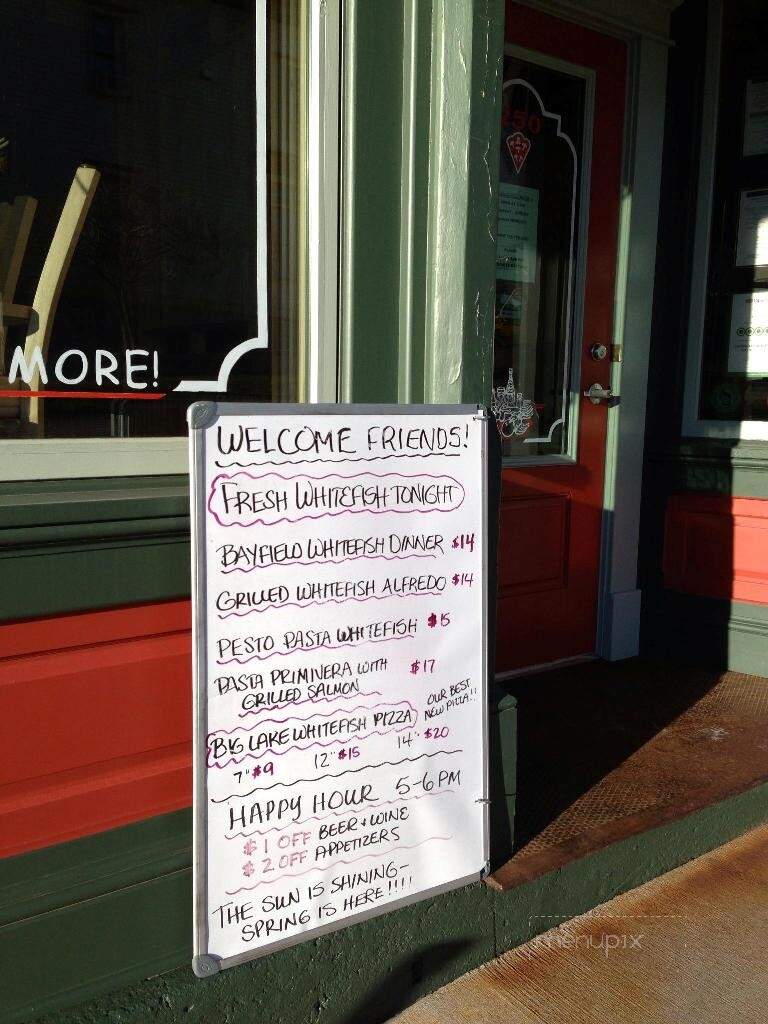 250
MORE!
WELCOME FRIENDS!
FRESH WHITEFISH TONIGHT
BAYFIELD WHITEFISH DINNER $14
GRILLED WHITEFISH ALFREDO $14
PESTO PASTA WHITEFISH $15
PASTA PRIMINERA WITH $17
GRILLED SALMON
BIG LAKE WHITEFISH PIZZA
OUR BEST
NEW PIZZA!!
7" $9 12" $15 14" $20
HAPPY HOUR 5-6 PM
$1 OFF BEER + WINE
$2 OFF APPETIZERS
THE SUN IS SHINING-
SPRING IS HERE!!!!
menupix